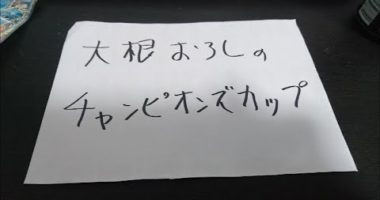 大根おろしの
チャンピオンズカップ